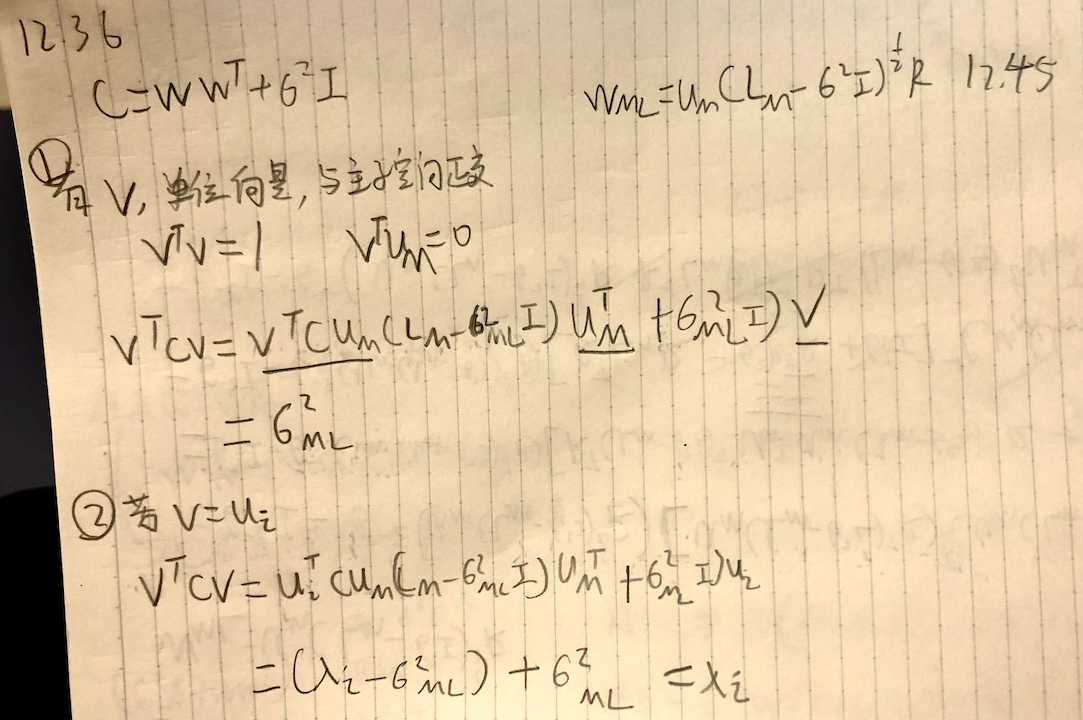 12.36
C=WWᵀ+6²I    W_ML=U_M(L_M-6²I)^½R 12.45
① 若V,单位向量,与主子空间正交
VᵀV=1    VᵀU_M=0
VᵀCV=VᵀCU_M(L_M-6²_MLI)U_Mᵀ+6²_MLI)V
=6²_ML
② 若V=u_i
VᵀCV=u_iᵀCU_M(L_M-6²_MLI)U_Mᵀ+6²_MLI)u_i
=(λ_i-6²_ML)+6²_ML=λ_i